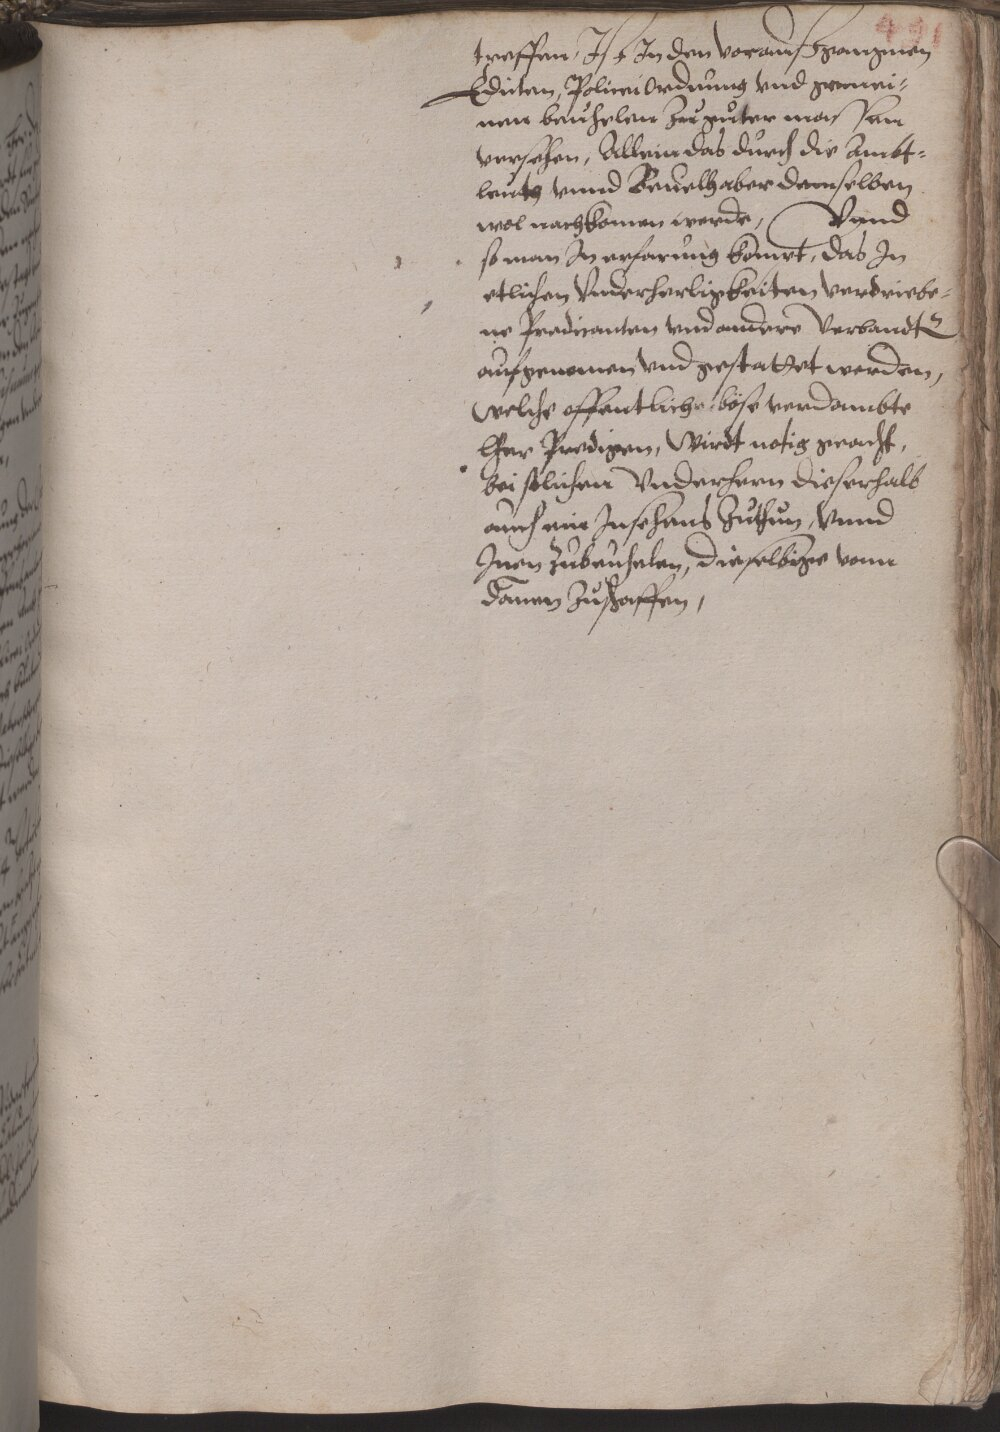 491
treffen, Ist In den voraußgangnen
Edicten, Policei Ordnung vnd gemei-
nen beuhelen zu guter massen
versehen, Allein das durch die Ambt-
leuth vnnd Beuelhaber demselben
wol nachkomen werde, Vnnd
so man In erfarung kompt, das In
etlichen Vnderherligkeiten verdriebe-
ne Predicanten vnd andere Verbandte
aufgenomen vnd gestattet werden,
welche offentliche böse verdambte
lher Predigen, Wirdt notig geacht,
bei solichen Vnderhern dieserhalb
auch ein Insehens zuthun, Vnnd
Inen zubeuhelen, dieselbige vonn
dannen zuschaffen,